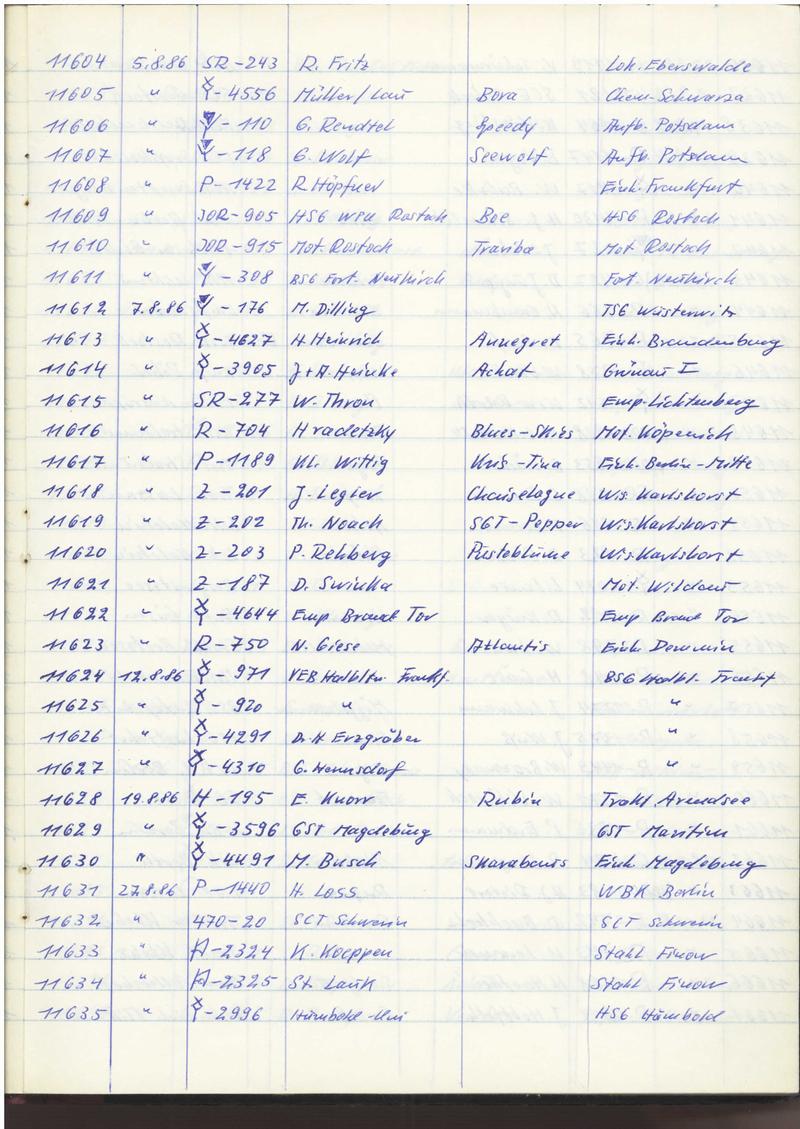 11604 5.8.86 SR-243 R. Fritz Lok. Eberswalde
11605 " -4556 Müller/ Bora Chem. Schwarza
11606 " -110 G. Rendtel Speedy Aufb. Potsdam
11607 " -118 G. Wolf Seewolf Aufb. Potsdam
11608 " P-1422 R. Höpfner Einh. Frankfurt
11609 " JOR-905 HSG WPU Rostock Boe HSG Rostock
11610 " JOR-915 Mot. Rostock Traviba Mot. Rostock
11611 " -308 BSG Fort. Neukirch Fort. Neukirch
11612 7.8.86 -176 M. Dilling TSG Wusterwitz
11613 " -4627 H. Heinrich Annegret Einh. Brandenburg
11614 " -3905 J+A. Heinke Achat Grünau I
11615 " SR-277 W. Thron Emp. Lichtenberg
11616 " R-704 Hradetzky Blues-Skies Mot. Köpenick
11617 " P-1189 Kl. Wittig Kris-Tina Einh. Berlin-Mitte
11618 " Z-201 J. Legler Chaiselogue Wis. Karlshorst
11619 " Z-202 Th. Noack SGT-Pepper Wis. Karlshorst
11620 " Z-203 P. Rehberg Pusteblume Wis. Karlshorst
11621 " Z-187 D. Swinka Mot. Wildau
11622 " -4644 Emp Brand Tor Emp Brand Tor
11623 " R-750 N. Giese Atlantis Einh. Demmin
11624 12.8.86 -971 VEB Halbltr. Frankf. BSG Halbl. Frankf
11625 " -920 " "
11626 " -4291 Dr. H. Erzgräber "
11627 " -4310 G. Hennsdorf "
11628 19.8.86 H-195 E. Knorr Rubin Trakt. Arendsee
11629 " -3596 GST Magdeburg GST Maritim
11630 " -4491 M. Busch Skarabäus Einh. Magdeburg
11631 27.8.86 P-1440 H. Loss WBK Berlin
11632 " 470-20 SCT Schwerin SCT Schwerin
11633 " -2324 K. Koeppen Stahl Finow
11634 " -2325 St. Lauk Stahl Finow
11635 " -2996 Humbold-Uni HSG Humbold